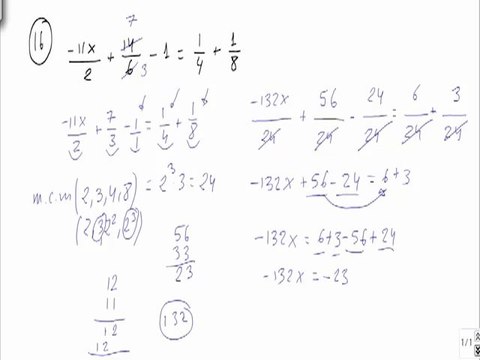 16
-11x/2 + 14/6 - 1 = 1/4 + 1/8
7
3
-11x/2 + 7/3 - 1/1 = 1/4 + 1/8
m.c.m (2,3,4,8) = 2³3 = 24
(2,3,2²,2³)
56
33
23
12
11
12
12
132
-132x/24 + 56/24 - 24/24 = 6/24 + 3/24
-132x + 56 - 24 = 6 + 3
-132x = 6 + 3 - 56 + 24
-132x = -23
1/1